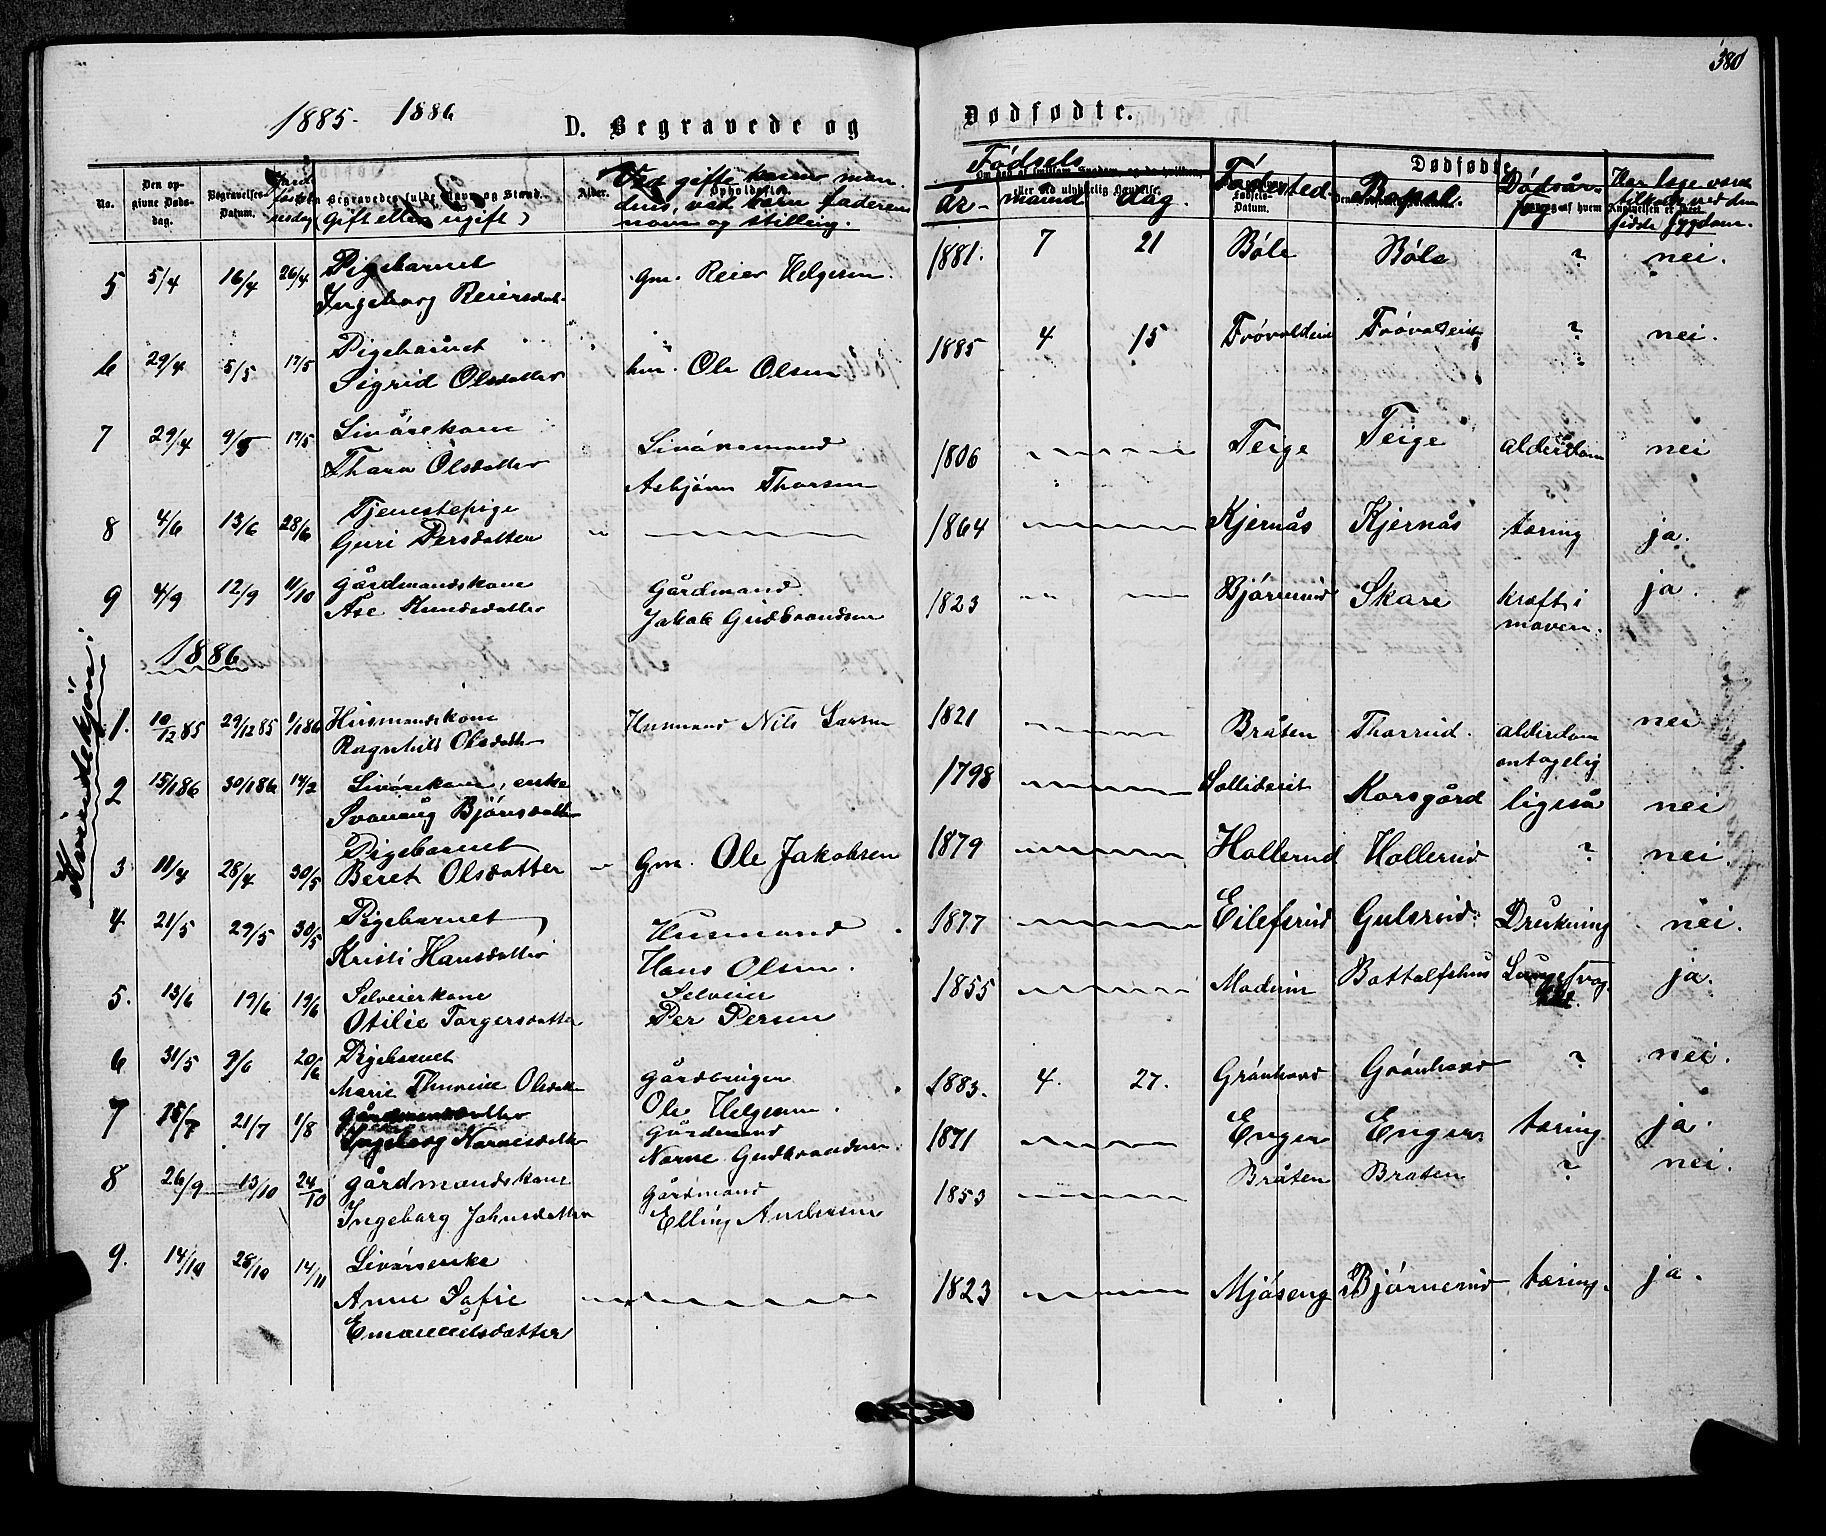 380
1885- 1886
D. Begravede og Dødfødte.
No. Den opgivne Dødsdag. Begravelses-Datum. Begravedes fulde Navn og Stand. (gift eller ugift) Alder. Opholdssted.
Ved gifte koner mandens, ved børn faderens navn og stilling.
Fødsels
år- maaned dag. Fødested Bopæl. Dødsårsag Har læge været tilkaldt ved den sidste sygdom.
Dødfødte
Kvindekjøn:
5 5/4 16/4 26/4 Pigebarnet Ingeborg Reiersdat- gm. Reier Helgesen 1881. 7 21 Bøle Bøle ? nei.
6 29/4 5/5 17/5 Pigebarnet Sigrid Olsdatter hm. Ole Olsen 1885 4 15 Frøvoldeie Frøvoldeie ? nei.
7 29/4 9/5 17/5 Livørekone Thora Olsdatter Livøremand Asbjørn Thorsen 1806 Teige Teige alderdom nei
8 4/6 13/6 28/6 Tjenestepige Guri Persdatter 1864 Kjernås Kjernås tæring ja.
9 4/9 12/9 11/10 gårdmandskone Åse Knudsdatter Gårdmand Jakob Gudbrandsen 1823 Bjørnerud Skare kræft i maven. ja.
1886
1. 10/12 85 29/12 85 1/1 86 Husmandskone Ragnhild Olsdatter Husmand Nils Larsen 1821 Bråten Thorrud. alderdom antagelig nei
2 15/1 86 30/1 86 14/2 Livørekone, enke Svanaug Bjørnsdatter 1798 Korsgård ligså nei
3 11/4 28/4 30/5 Pigebarnet Beret Olsdatter Gm. Ole Jakobsen 1879 Hollerud Hollerud ? nei.
4. 21/5 29/5 30/5 Pigebarnet Kristi Hansdatter Husmand Hans Olsen. 1877 Eilefsrud Gulsrud. Drukning nei.
5. 13/6 19/6 19/6 Selveierkone Otilie Torgersdatter Selveier Per Persen 1855 Modum ja.
6 31/5 9/6 20/6 Pigebarnet Marie Thurine Olsdatter gårdbruger Ole Helgesen. 1883. 4. 27. Grønhovd Grønhovd ? nei.
7 15/7 21/7 1/8 gårdmandsdatter Ingeborg Narvesdatter Gårdmand Narve Gudbrandsen. 1871 Enger Enger tæring ja.
8 26/9 13/10 24/10 gårdmandskone Ingeborg Johnsdatter Gårdmand Elling Andersen 1853 Bråten Braten ? nei.
9. 14/10 28/10 14/11 Livørsenke Anne Sofie Emanuelsdatter 1823 Mjøseng Bjørnerud tæring. ja.